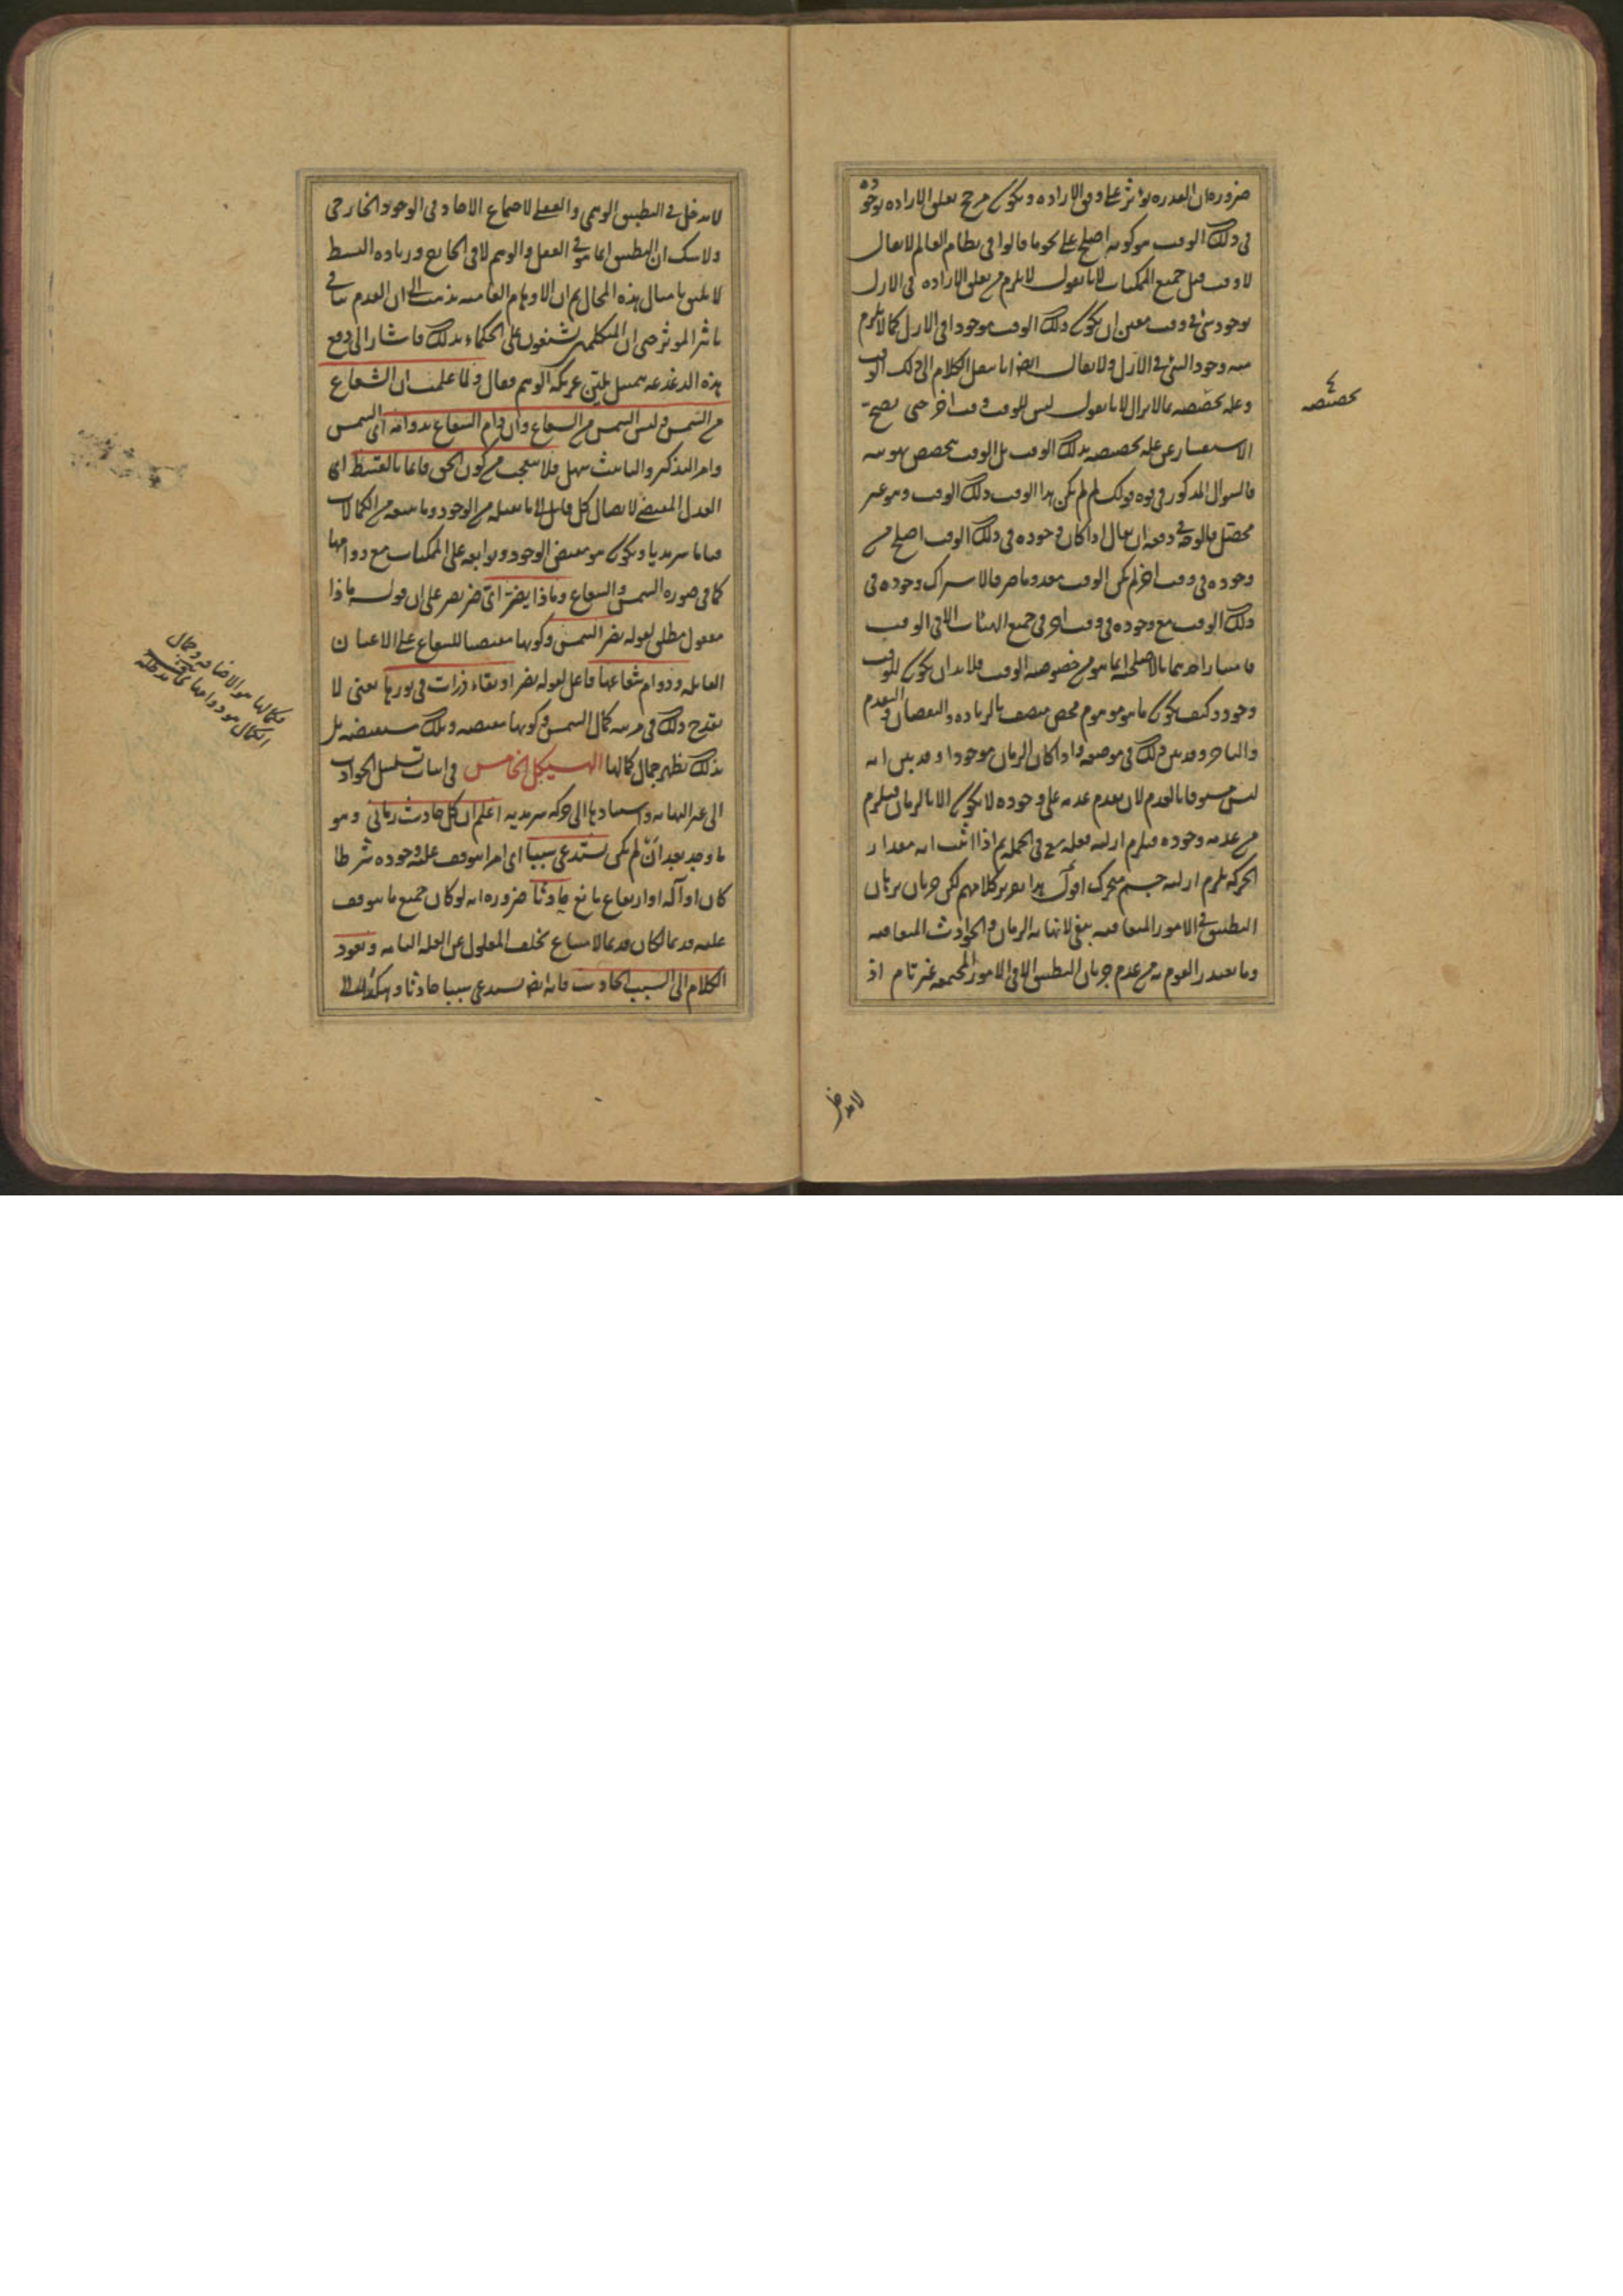 ضرورة ان القدرة تؤثر على وفق الارادة ويكون مرجح تعلق الارادة بوجوده
فى ذلك الوقت هو كونه اصلح على نحو ما قالوا فى نظام العالم لا يقال
لا وقت قبل جميع الممكنات لانا نقول لا يلزم من تعلق الارادة فى الازل
بوجود شئ فى وقت معين ان يكون ذلك الوقت موجودا فى الازل كما لا يلزم
منه وجود الشئ فى الازل ولا يقال ايضا انا ننقل الكلام الى ذلك الوقت
وعلة تخصصه بما لا يزال لانا نقول ليس للوقت وقت اخر حتى يصح
الاستفسار عن علة تخصيصه بذلك الوقت بل الوقت متخصص بهويته
فالسوال المذكور فى قوة قولك لم لم يكن هذا الوقت ذلك الوقت وهو غير
محصل فالوجه فى دفعه ان يقال اذا كان وجوده فى ذلك الوقت اصلح من
وجوده فى وقت اخر لم يكن الوقت معدوما صرفا لاشتراك وجوده فى
ذلك الوقت مع وجوده فى وقت اخر فى جميع الهيئات الا فى الوقت
فامتياز احدهما بالاصلحية انما هو من خصوصية الوقت فلا بد ان يكون للوقت
وجود وكيف يكون ما هو موهوم محض متصف بالزيادة والنقصان والتقدم
والتاخر وقد بين ذلك فى موضعه واذا كان الزمان موجودا وقد بين انه
ليس مسبوقا بالعدم لان تقدم عدمه على وجوده لا يكون الا بالزمان فيلزم
من عدمه وجوده فيلزم ازلية فعله تع فى الجملة ثم اذا اثبت انه مقدار
الحركة يلزم ازلية جسم متحرك اقول هذا تقرير كلامهم لكن جريان برهان
التطبيق فى الامور المتعاقبة ينفى لانهاية الزمان والحوادث المتعاقبة
وما يعتذر القوم به من عدم جريان التطبيق الا فى الامور المجتمعة غير تام اذ
تخصيصه
لا مدخل
لا مدخل فى التطبيق الوهمى والعقلى لاجتماع الاحاد فى الوجود الخارجى
ولا شك ان التطبيق انما هو فى العقل والوهم لا فى الخارج وزيادة البسط
لا يليق بامثال هذه المحال ثم ان الاوهام العامية يذهب الى ان العدم ينافى
تاثير الموثر حتى ان المتكلمين يشنعون على الحكماء بذلك فاشار الى دفع
هذه الدغدغة بتمثيل يلين عريكة الوهم فقال ولما علمت ان الشعاع
من الشمس وليس الشمس من الشعاع وان دام الشعاع بدوامه اى الشمس
وامر التذكير والتانيث سهل فلا تتعجب من كون الحق قائما بالقسط اى
العدل المقتضى لايصال كل قابل الى ما يقبله من الوجود وما يتبعه من الكمالات
قياما سرمديا ويكون هو مفيض الوجود وتوابعه على الممكنات مع دوامها
كما فى صورة الشمس والشعاع وماذا يضر اى ضر يضر على ان قوله ماذا
مفعول مطلق لقوله يضر الشمس وكونها مفيضا للشعاع على الاعيان
القابلة ودوام شعاعها فاعل لقوله يضر او بقاء ذرات فى نورها يعنى لا
يقدح ذلك فى مرتبة كمال الشمس وكونها مفيضة وتلك مستفيضة بل
بذلك يظهر جمال كمالها الهيكل الخامس فى اثبات تسلسل الحوادث
الى غير النهاية واستنادها الى حركة سرمدية اعلم ان كل حادث زمانى وهو
ما وجد بعد ان لم يكن يستدعى سببا اى امرا يتوقف عليه وجوده شرطا
كان او آلة او ارتفاع مانع حادثا ضرورة انه لو كان جميع ما يتوقف
عليه قديما لكان قديما لامتناع تخلف المعلول عن العلة التامة ويعود
الكلام الى السبب الحادث فانه ايضا يستدعى سببا حادثا وهكذا الى
فكمالها هو الاضاءة وجمال
الكمال هو دوامها